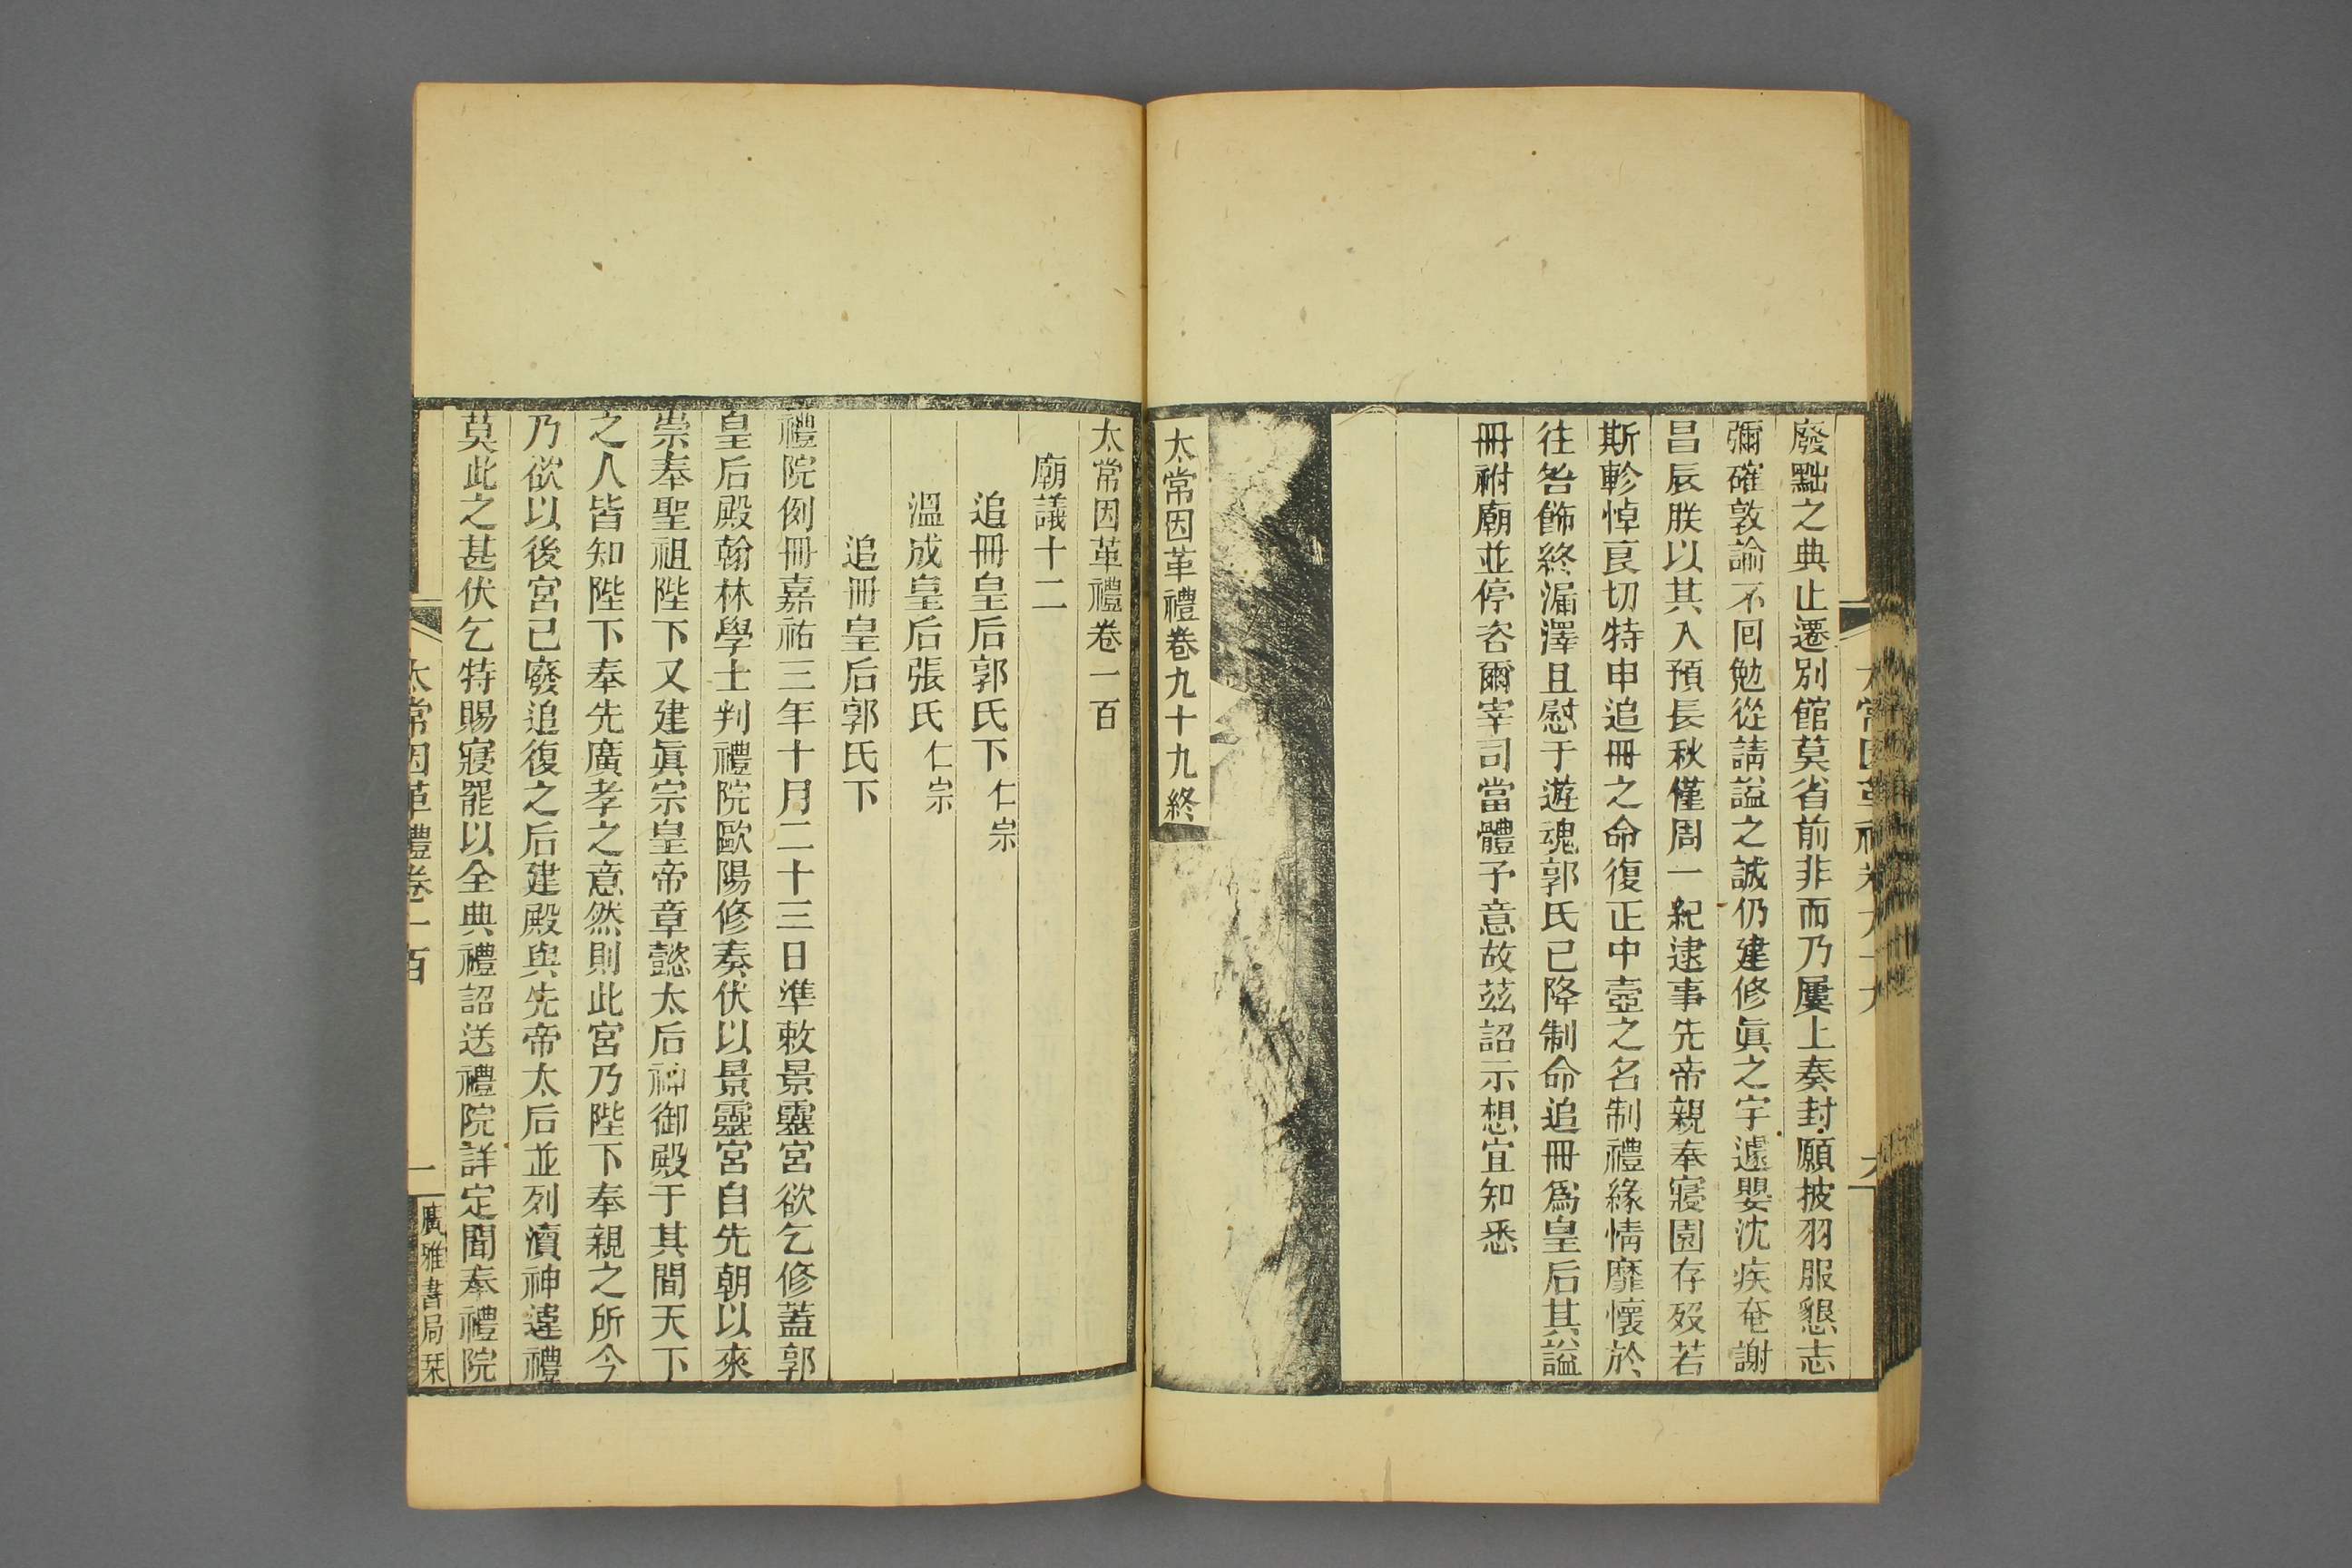 廢黜之典止遷別館莫省前非而乃屢上奏封願披羽服懇志
彌確敦諭不回勉從請謚之誠仍建修眞之宇遽嬰沈疾奄謝
昌辰朕以其入預長秋僅周一紀逮事先帝親奉寢園存歿若
斯軫悼良切特申追冊之命復正中壼之名制禮緣情靡懷於
往咎飾終漏澤且慰于遊魂郭氏已降制命追冊爲皇后其謚
冊祔廟並停咨爾宰司當體予意故茲詔示想宜知悉
太常因革禮卷九十九終
太常因革禮卷一百
廟議十二
追冊皇后郭氏下仁宗
溫成皇后張氏仁宗
追冊皇后郭氏下
禮院例冊嘉祐三年十月二十三日準敕景靈宮欲乞修蓋郭
皇后殿翰林學士判禮院歐陽修奏伏以景靈宮自先朝以來
崇奉聖祖陛下又建眞宗皇帝章懿太后神御殿于其間天下
之人皆知陛下奉先廣孝之意然則此宮乃陛下奉親之所今
乃欲以後宮已廢追復之后建殿與先帝太后並列瀆神違禮
莫此之甚伏乞特賜寢罷以全典禮詔送禮院詳定聞奉禮院
太常因革禮卷一百
一
廣雅書局栞